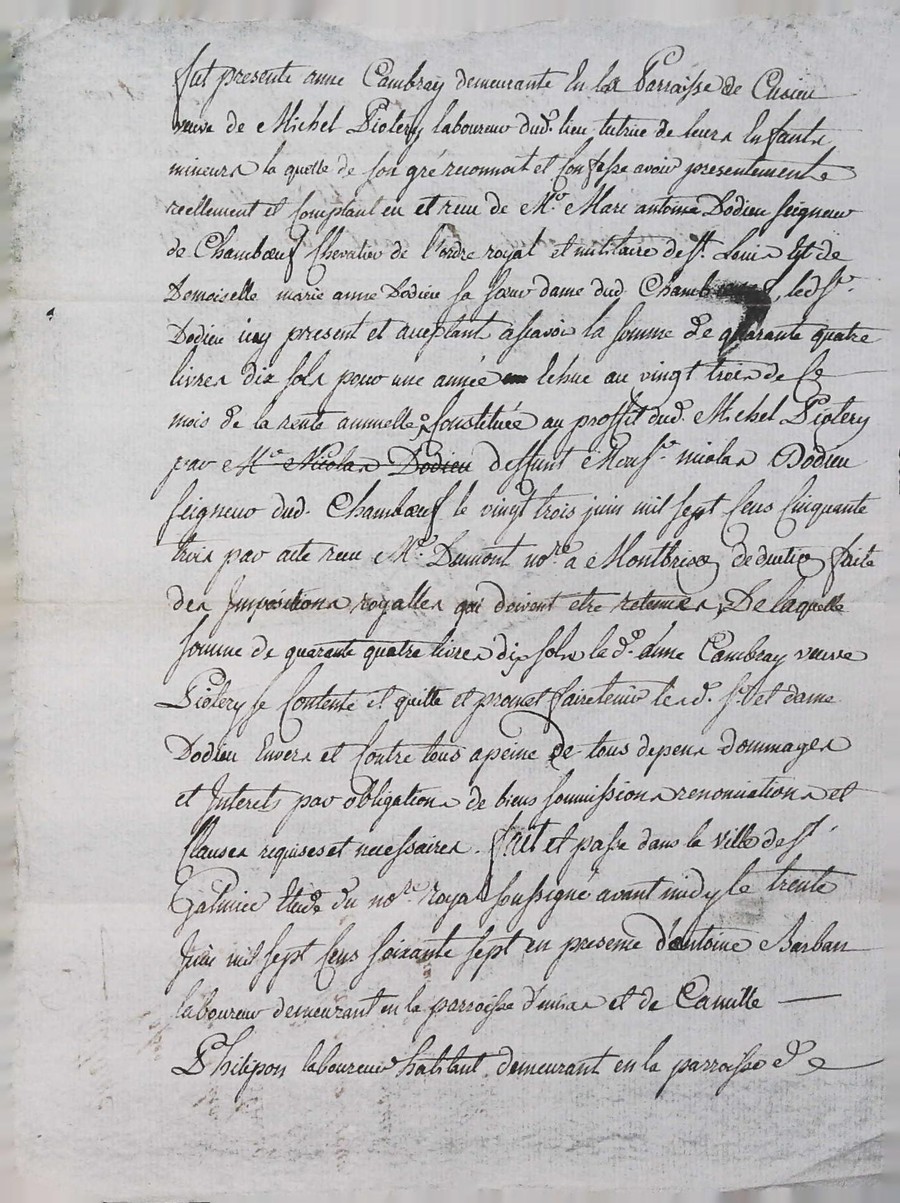 fut presente anne Cambray demeurante En la Parraisse de Cusieu
veuve de Michel Piotery laboureur dud. lieu tutrice de leurs Enfants
mineurs la quelle de son gré reconnoit et Confesse avoir presentement
reellement et Comptant eu et receu de Mre. Marc antoine Dodieu seigneur
de Chambœuf Chevalier de l'ordre royal et militaire de st. Louis Et de
Demoiselle marie anne Dodieu sa sœur dame dud. Chambœuf, led. sr.
Dodieu icy present et acceptant ascavoir la somme de quarante quatre
livres dix sols pour une année Echue au vingt trois de Ce
mois de la rente annuelle Constituée au proffit dud. Michel Piotery
par Mre Nicolas Dodieu deffunt Messre. nicolas Dodieu
seigneur dud. Chambœuf le vingt trois juin mil sept Cens Cinquante
trois par acte receu Me. Dumont nore. a Montbrison deduction faite
des Impositions royalles qui doivent etre retenues, De laquelle
somme de quarante quatre livres dix sols lad. anne Cambray veuve
Piotery se Contente et quitte et promet faire tenir lesd. sr. et dame
Dodieu Envers et Contre tous a peine de tous depens dommages
et Interets par obligations de biens soumissions renonciations et
Clauses requises et necessaires. fait et passé dans la ville de st.
Galmier Etude du nore. royal soussigné avant midy le trente
Juin mil sept Cens soixante sept en presence d'antoine Barban
laboureur demeurant en la parroisse et de Camille
Philipon laboureur habitant demeurant en la parroisse de